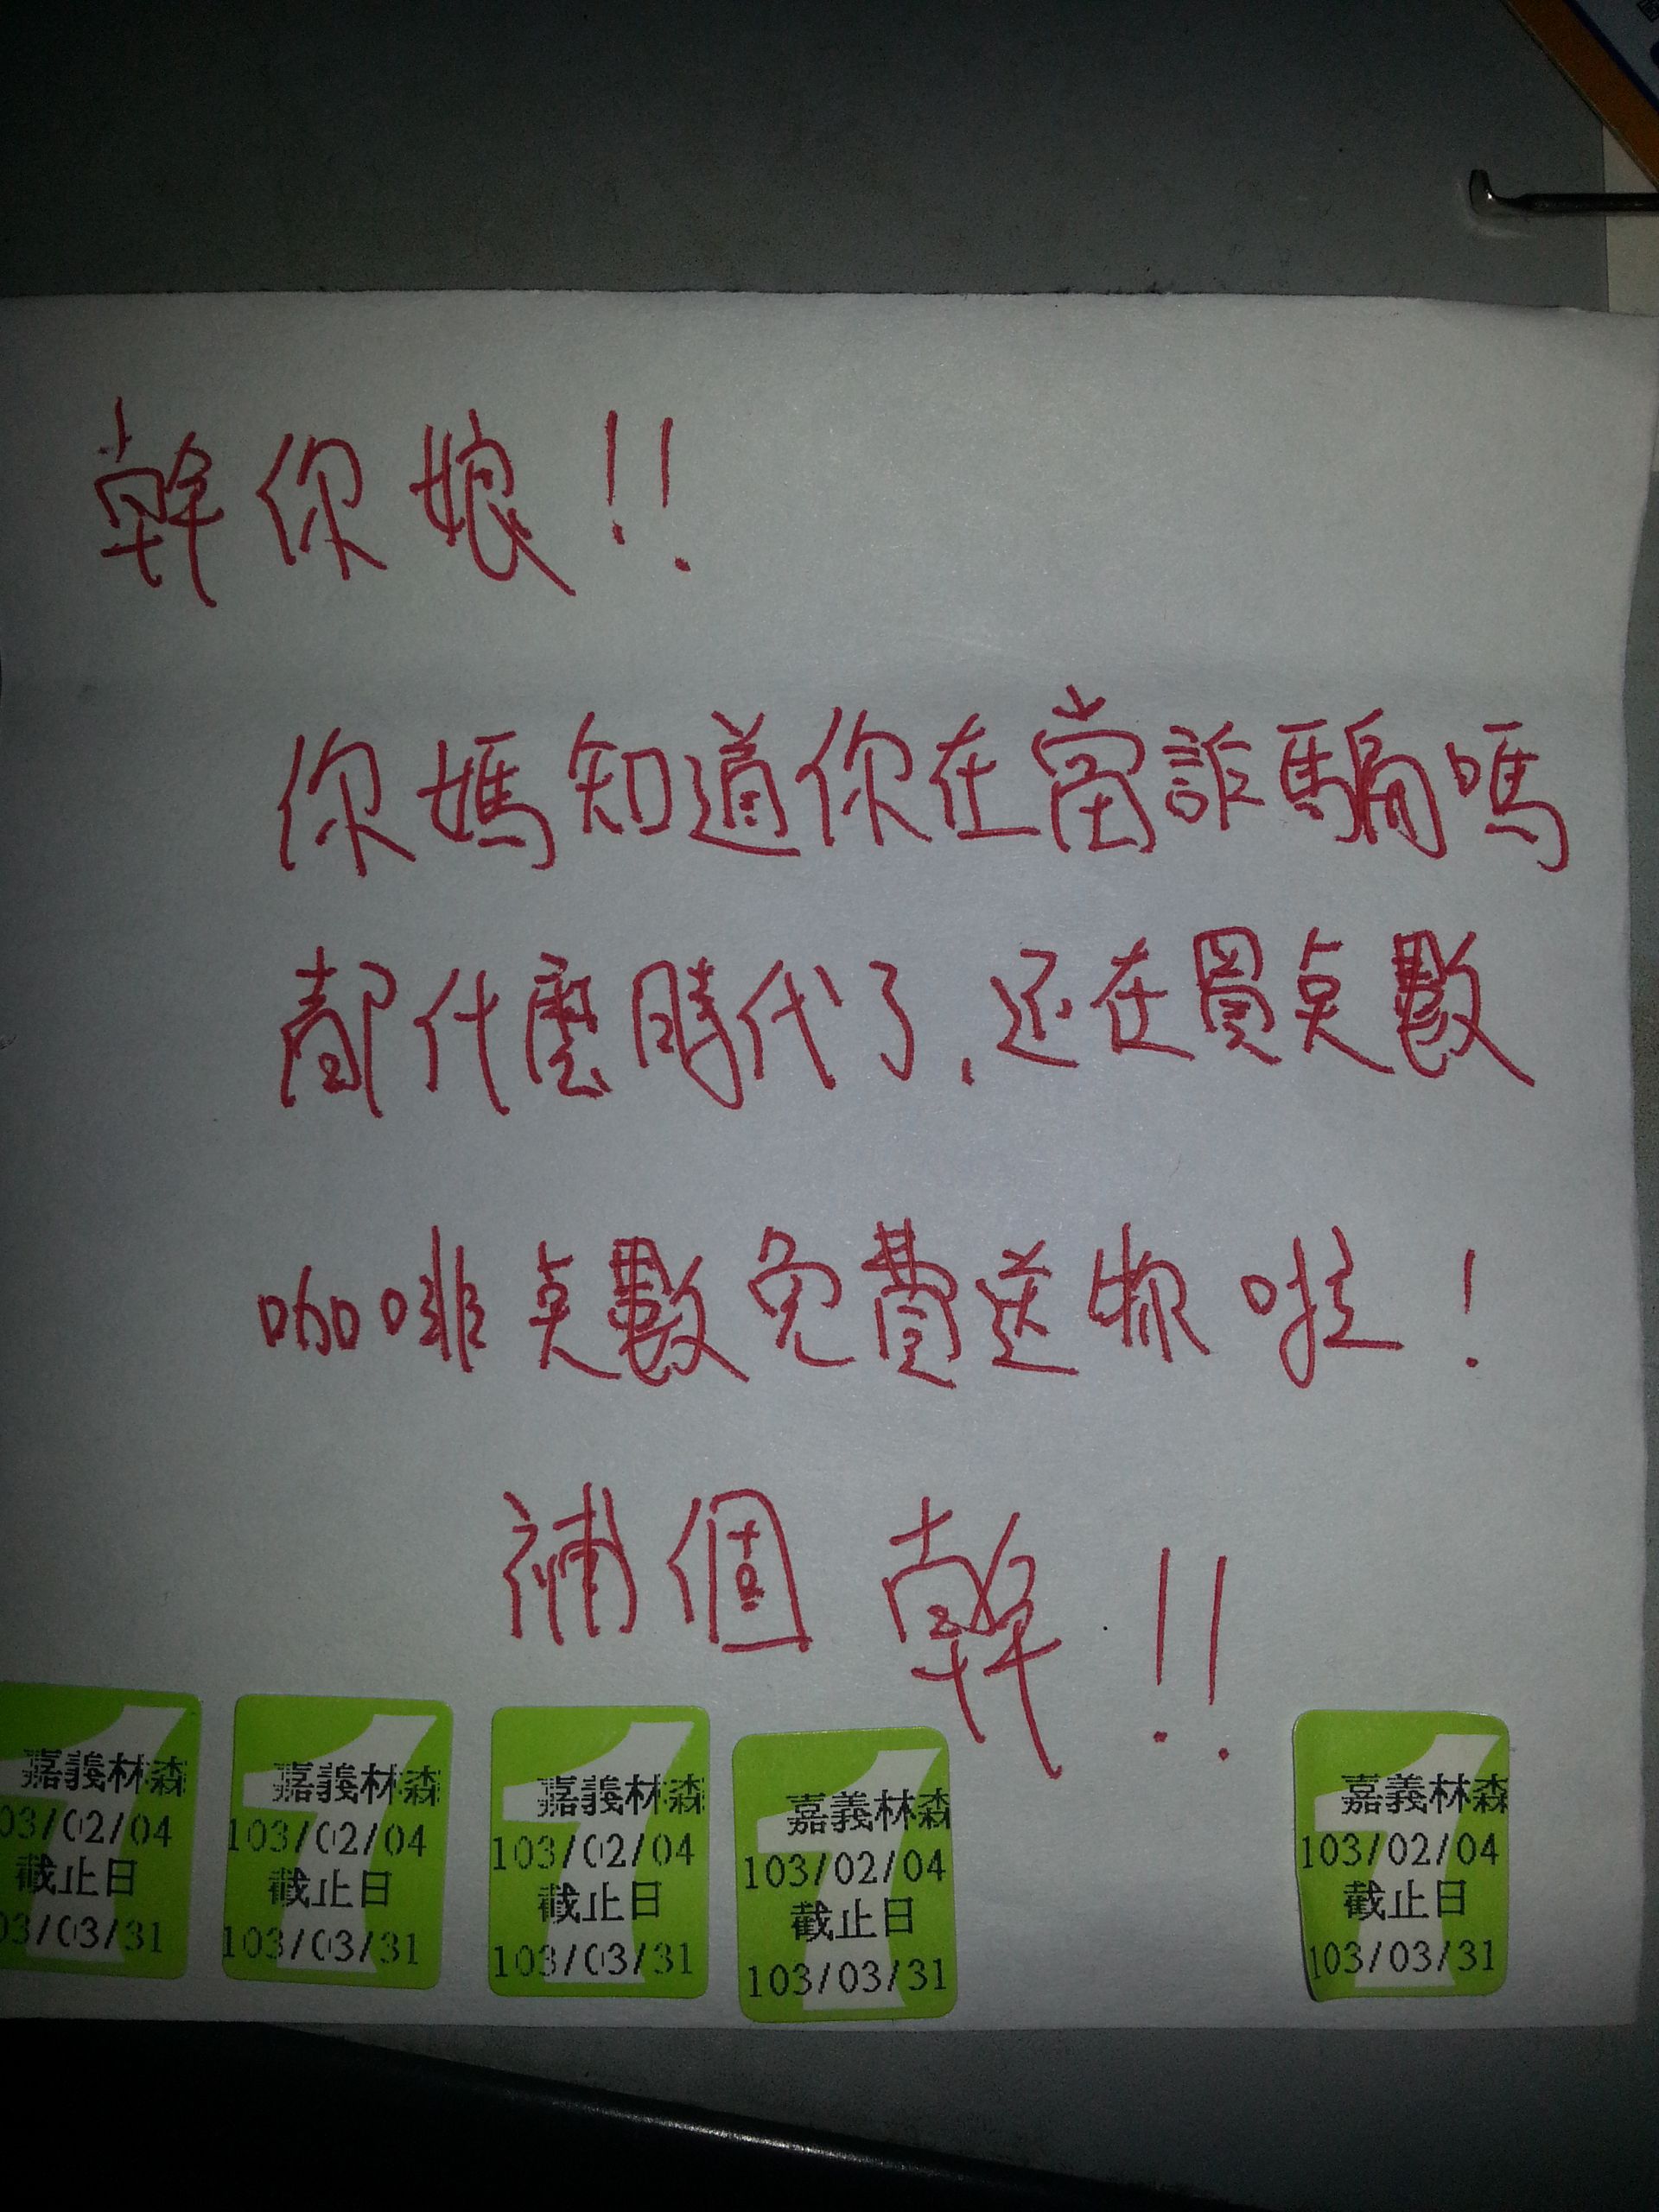 幹你娘!!
你媽知道你在當詐騙嗎
都什麼時代了,还在買点數
咖啡点數免費送你啦!
補個幹!!
嘉義林森
03/02/04
截止日
03/03/31
嘉義林森
103/02/04
截止日
103/03/31
嘉義林森
103/02/04
截止日
103/03/31
嘉義林森
103/02/04
截止日
103/03/31
嘉義林森
103/02/04
截止日
103/03/31